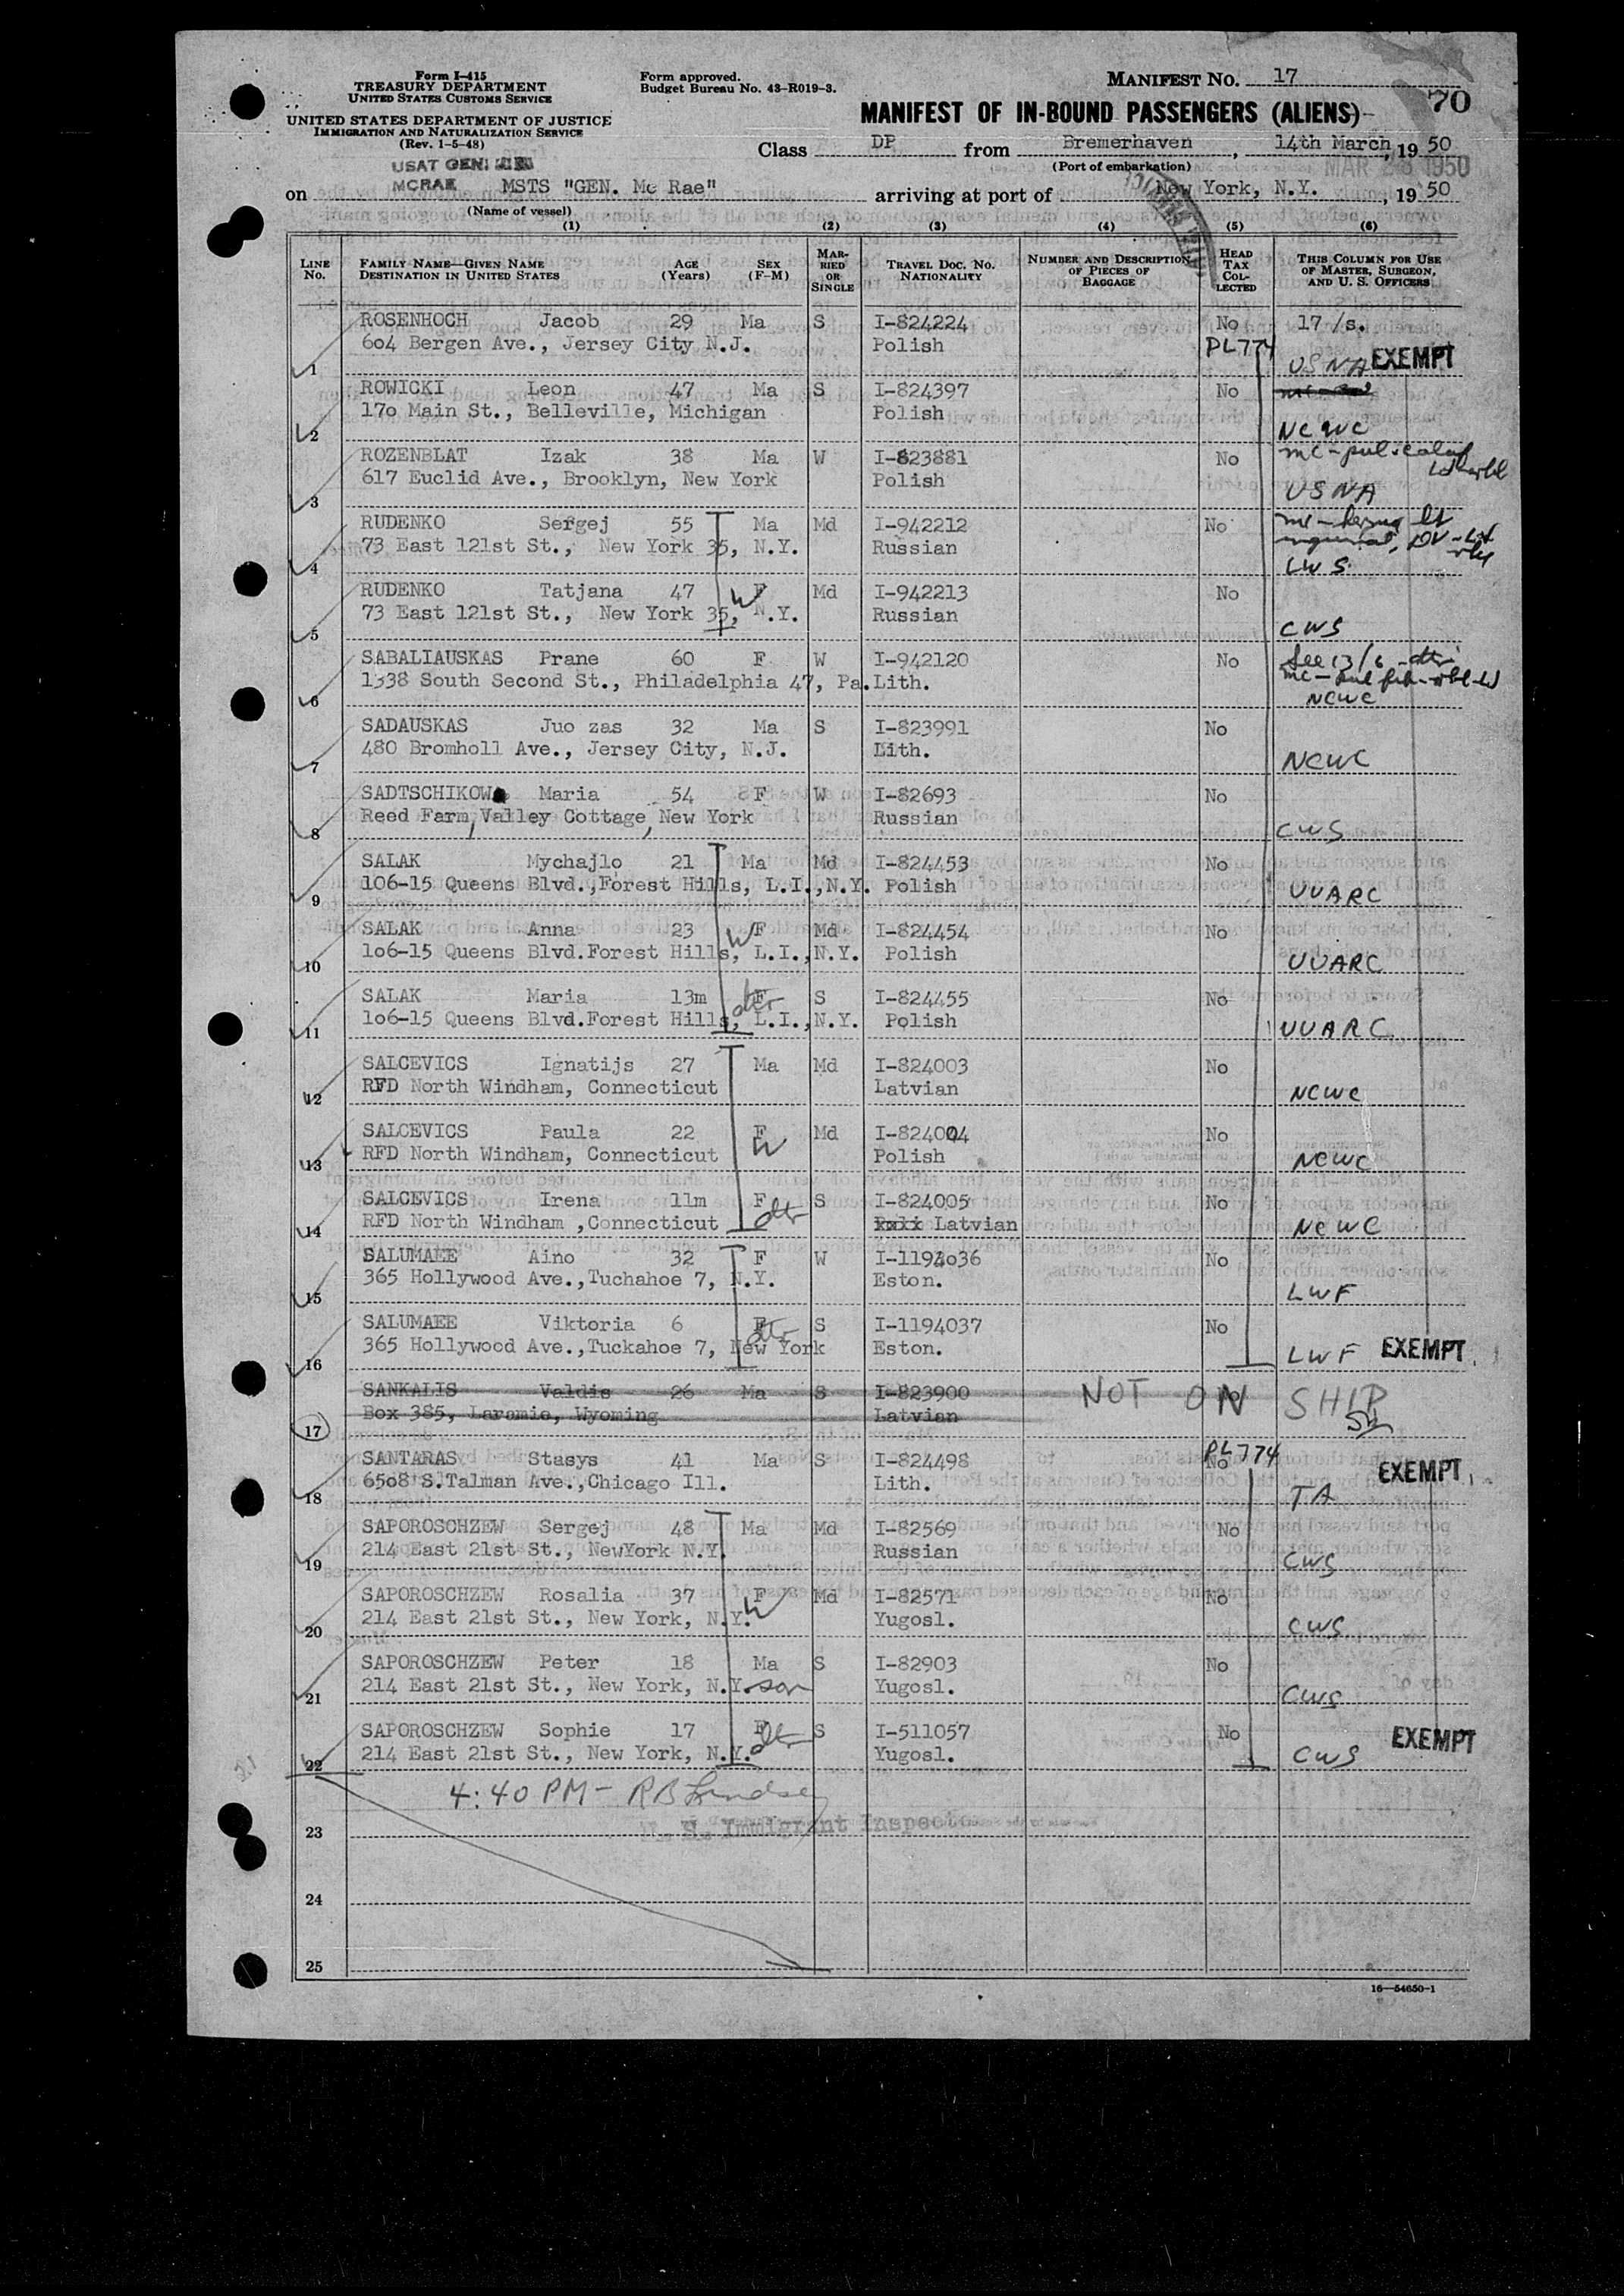 Form I-415
TREASURY DEPARTMENT
UNITED STATES CUSTOMS SERVICE
UNITED STATES DEPARTMENT OF JUSTICE
IMMIGRATION AND NATURALIZATION SERVICE
(Rev. 1-5-48)
Form approved.
Budget Bureau No. 43-R019-3.
MANIFEST NO. 17
70
MANIFEST OF IN-BOUND PASSENGERS (ALIENS)
Class DP from Bremerhaven, 14th March, 19 50
(Port of embarkation)
USAT GEN.
MCRAE
on MSTS "GEN. Mc Rae" arriving at port of New York, N.Y., 19 50
(Name of vessel)
(1) (2) (3) (4) (5) (6)
LINE No. FAMILY NAME—GIVEN NAME DESTINATION IN UNITED STATES AGE (Years) SEX (F-M) MARRIED OR SINGLE TRAVEL DOC. NO. NATIONALITY NUMBER AND DESCRIPTION OF PIECES OF BAGGAGE HEAD TAX COLLECTED THIS COLUMN FOR USE OF MASTER, SURGEON, AND U. S. OFFICERS
ROSENHOCH Jacob 29 Ma S I-824224 No 17 /s.
604 Bergen Ave., Jersey City N.J. Polish PL774
1 USNA EXEMPT
ROWICKI Leon 47 Ma S I-824397 No
17o Main St., Belleville, Michigan Polish
2 NCWC
ROZENBLAT Izak 38 Ma W I-823881 No mc-pul.
617 Euclid Ave., Brooklyn, New York Polish
3 USNA
RUDENKO Sergej 55 Ma Md I-942212 No
73 East 121st St., New York 35, N.Y. Russian
4 CWS
RUDENKO Tatjana 47 F W Md I-942213 No
73 East 121st St., New York 35, N.Y. Russian
5 CWS
SABALIAUSKAS Prane 60 F W I-942120 No See 13/6 - dtr
1338 South Second St., Philadelphia 47, Pa. Lith.
6 NCWC
SADAUSKAS Juo zas 32 Ma S I-823991 No
480 Bromholl Ave., Jersey City, N.J. Lith.
7 NCWC
SADTSCHIKOWA Maria 54 F W I-82693 No
Reed Farm, Valley Cottage, New York Russian
8 CWS
SALAK Mychajlo 21 Ma Md I-824453 No
106-15 Queens Blvd.,Forest Hills, L.I.,N.Y. Polish
9 UUARC
SALAK Anna 23 F W Md I-824454 No
1o6-15 Queens Blvd.Forest Hills, L.I.,N.Y. Polish
10 UUARC
SALAK Maria 13m F dtr S I-824455 No
1o6-15 Queens Blvd.Forest Hills, L.I.,N.Y. Polish
11 UUARC
SALCEVICS Ignatijs 27 Ma Md I-824003 No
RFD North Windham, Connecticut Latvian
12 NCWC
SALCEVICS Paula 22 F W Md I-824004 No
RFD North Windham, Connecticut Polish
13 NCWC
SALCEVICS Irena 11m F dtr S I-824005 No
RFD North Windham ,Connecticut Latvian
14 NCWC
SALUMAEE Aino 32 F W I-1194o36 No
365 Hollywood Ave.,Tuchahoe 7, N.Y. Eston.
15 LWF
SALUMAEE Viktoria 6 F dtr S I-1194037 No
365 Hollywood Ave.,Tuckahoe 7, New York Eston.
16 LWF EXEMPT
SANKALIS Valdis 26 Ma S I-823900 NOT ON SHIP
Box 385, Laramie, Wyoming Latvian
17
SANTARAS Stasys 41 Ma S I-824498 PL774 No
65o8 S.Talman Ave.,Chicago Ill. Lith. EXEMPT
18 TA
SAPOROSCHZEW Sergej 48 Ma Md I-82569 No
214 East 21st St., NewYork N.Y. Russian
19 CWS
SAPOROSCHZEW Rosalia 37 F W Md I-82571 No
214 East 21st St., New York, N.Y. Yugosl.
20 CWS
SAPOROSCHZEW Peter 18 Ma S I-82903 No
214 East 21st St., New York, N.Y. son Yugosl.
21 CWS
SAPOROSCHZEW Sophie 17 F dtr S I-511057 No
214 East 21st St., New York, N.Y. Yugosl. EXEMPT
22 CWS
4:40 PM - RB Lindsey
U. S. Immigrant Inspector
23
24
25
16—54650-1